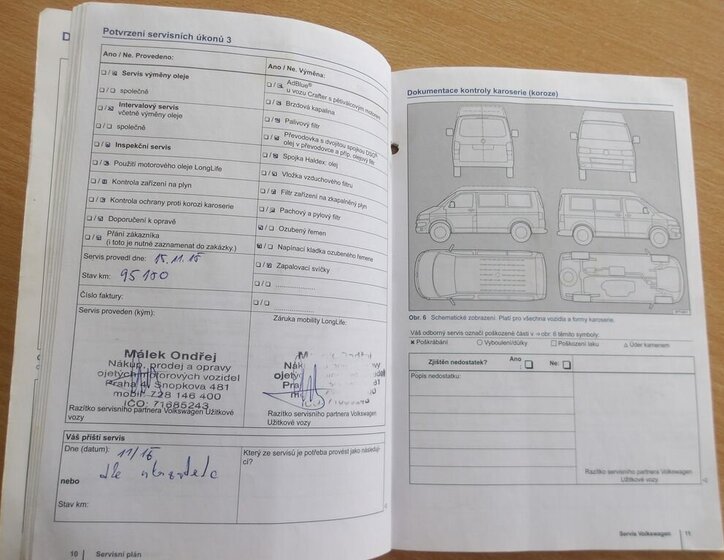 Potvrzení servisních úkonů 3
Ano / Ne. Provedeno:
Servis výměny oleje
společně
Intervalový servis
včetně výměny oleje
společně
Inspekční servis
Použití motorového oleje LongLife
Kontrola zařízení na plyn
Kontrola ochrany proti korozi karoserie
Doporučení k opravě
Přání zákazníka
(i toto je nutné zaznamenat do zakázky.)
Servis provedl dne: 15.11.15
Stav km: 95100
Číslo faktury:
Servis proveden (kým):
Málek Ondřej
Nákup, prodej a opravy
ojetých motorových vozidel
Praha 4, Šnopkova 481
mobil 728 146 400
IČO: 71685243
Razítko servisního partnera Volkswagen Užitkové
vozy
Ano / Ne. Výměna:
AdBlue®
u vozu Crafter s pětiválcovým motorem
Brzdová kapalina
Palivový filtr
Převodovka s dvojitou spojkou DSG®:
olej v převodovce a příp. olejový filtr
Spojka Haldex: olej
Vložka vzduchového filtru
Filtr zařízení na zkapalněný plyn
Pachový a pylový filtr
Ozubený řemen
Napínací kladka ozubeného řemene
Zapalovací svíčky
Záruka mobility LongLife:
Razítko servisního partnera Volkswagen
Užitkové vozy
Váš příští servis
Dne (datum): 11/16
nebo
Stav km:
Který ze servisů je potřeba provést jako následují-
cí?
10 Servisní plán
Dokumentace kontroly karoserie (koroze)
Obr. 6 Schematické zobrazení: Platí pro všechna vozidla a formy karoserie.
Váš odborný servis označí poškozené části v ⇒ obr. 6 těmito symboly:
Poškrábání Vybouleni/důlky Poškození laku Úder kamenem
Zjištěn nedostatek? Ano Ne:
Popis nedostatku:
Razítko servisního partnera Volkswagen
Užitkové vozy
Servis Volkswagen 11